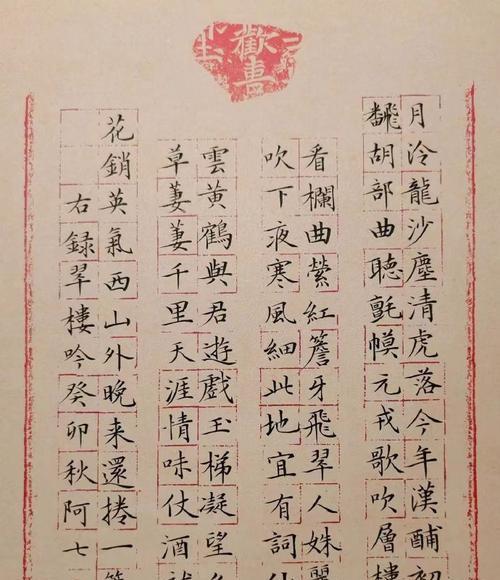 歡喜
月泠龍沙塵清虎落今年漢酺初
飜胡部曲聽氈幙元戎歌吹層樓
看欄曲縈紅簷牙飛翠人姝麗
吹下夜寒風細此地宜有詞
雲黃鶴與君遊戲玉梯凝望
草萋萋千里天涯情味仗酒
花銷英氣西山外晚来還捲一
右録翠樓吟癸卯秋阿七